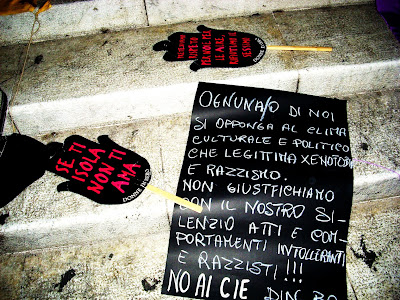 SE TI
ISOLA
NON TI
AMA
OGNUNA/O DI NOI
SI OPPONGA AL CLIMA
CULTURALE E POLITICO
CHE LEGITTIMA XENOFOBIA
E RAZZISMO.
NON GIUSTIFICHIAMO
CON IL NOSTRO SI-
LENZIO ATTI E COM-
PORTAMENTI INTOLLERANTI
E RAZZISTI!!!
NO AI CIE